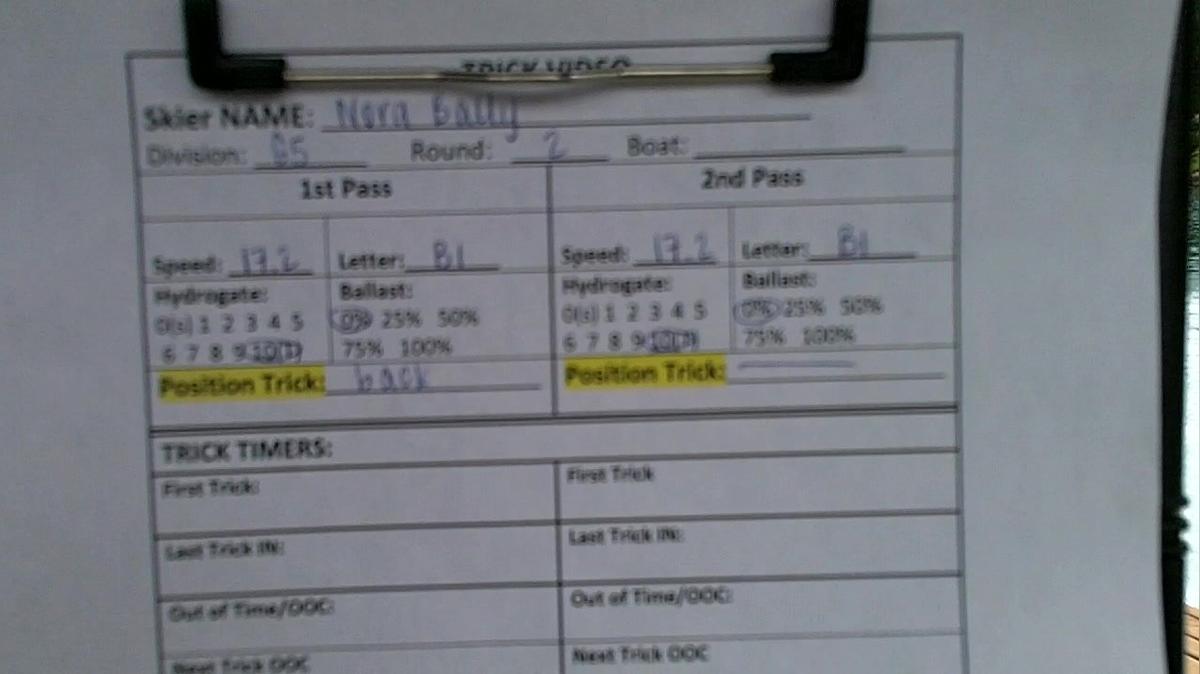 TRICK VIDEO
Skier NAME: Nora Bally
Division: G5 Round: 2 Boat:
1st Pass 2nd Pass
Speed: 17.2 Letter: B1 Speed: 17.2 Letter: B1
Hydrogate: Ballast: Hydrogate: Ballast:
0(s) 1 2 3 4 5 0% 25% 50% 0(s) 1 2 3 4 5 0% 25% 50%
6 7 8 9 10 75% 100% 6 7 8 9 10 75% 100%
Position Trick: back Position Trick:
TRICK TIMERS:
First Trick: First Trick
Last Trick IN: Last Trick IN:
Out of Time/OOC: Out of Time/OOC:
Next Trick OOC Next Trick OOC